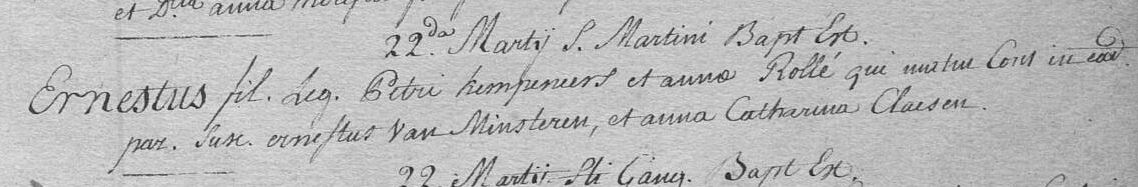 et D.lla anna
22.da Martij S. Martini Bapt Est.
Ernestus fil. Leg. Petri kempeneers et annæ Rollé qui mutuo Cons in ead.
par. Susc. ernestus Van Minsteren, et anna Catharina Claesen.
22 Martij Sti Gang. Bapt Est.